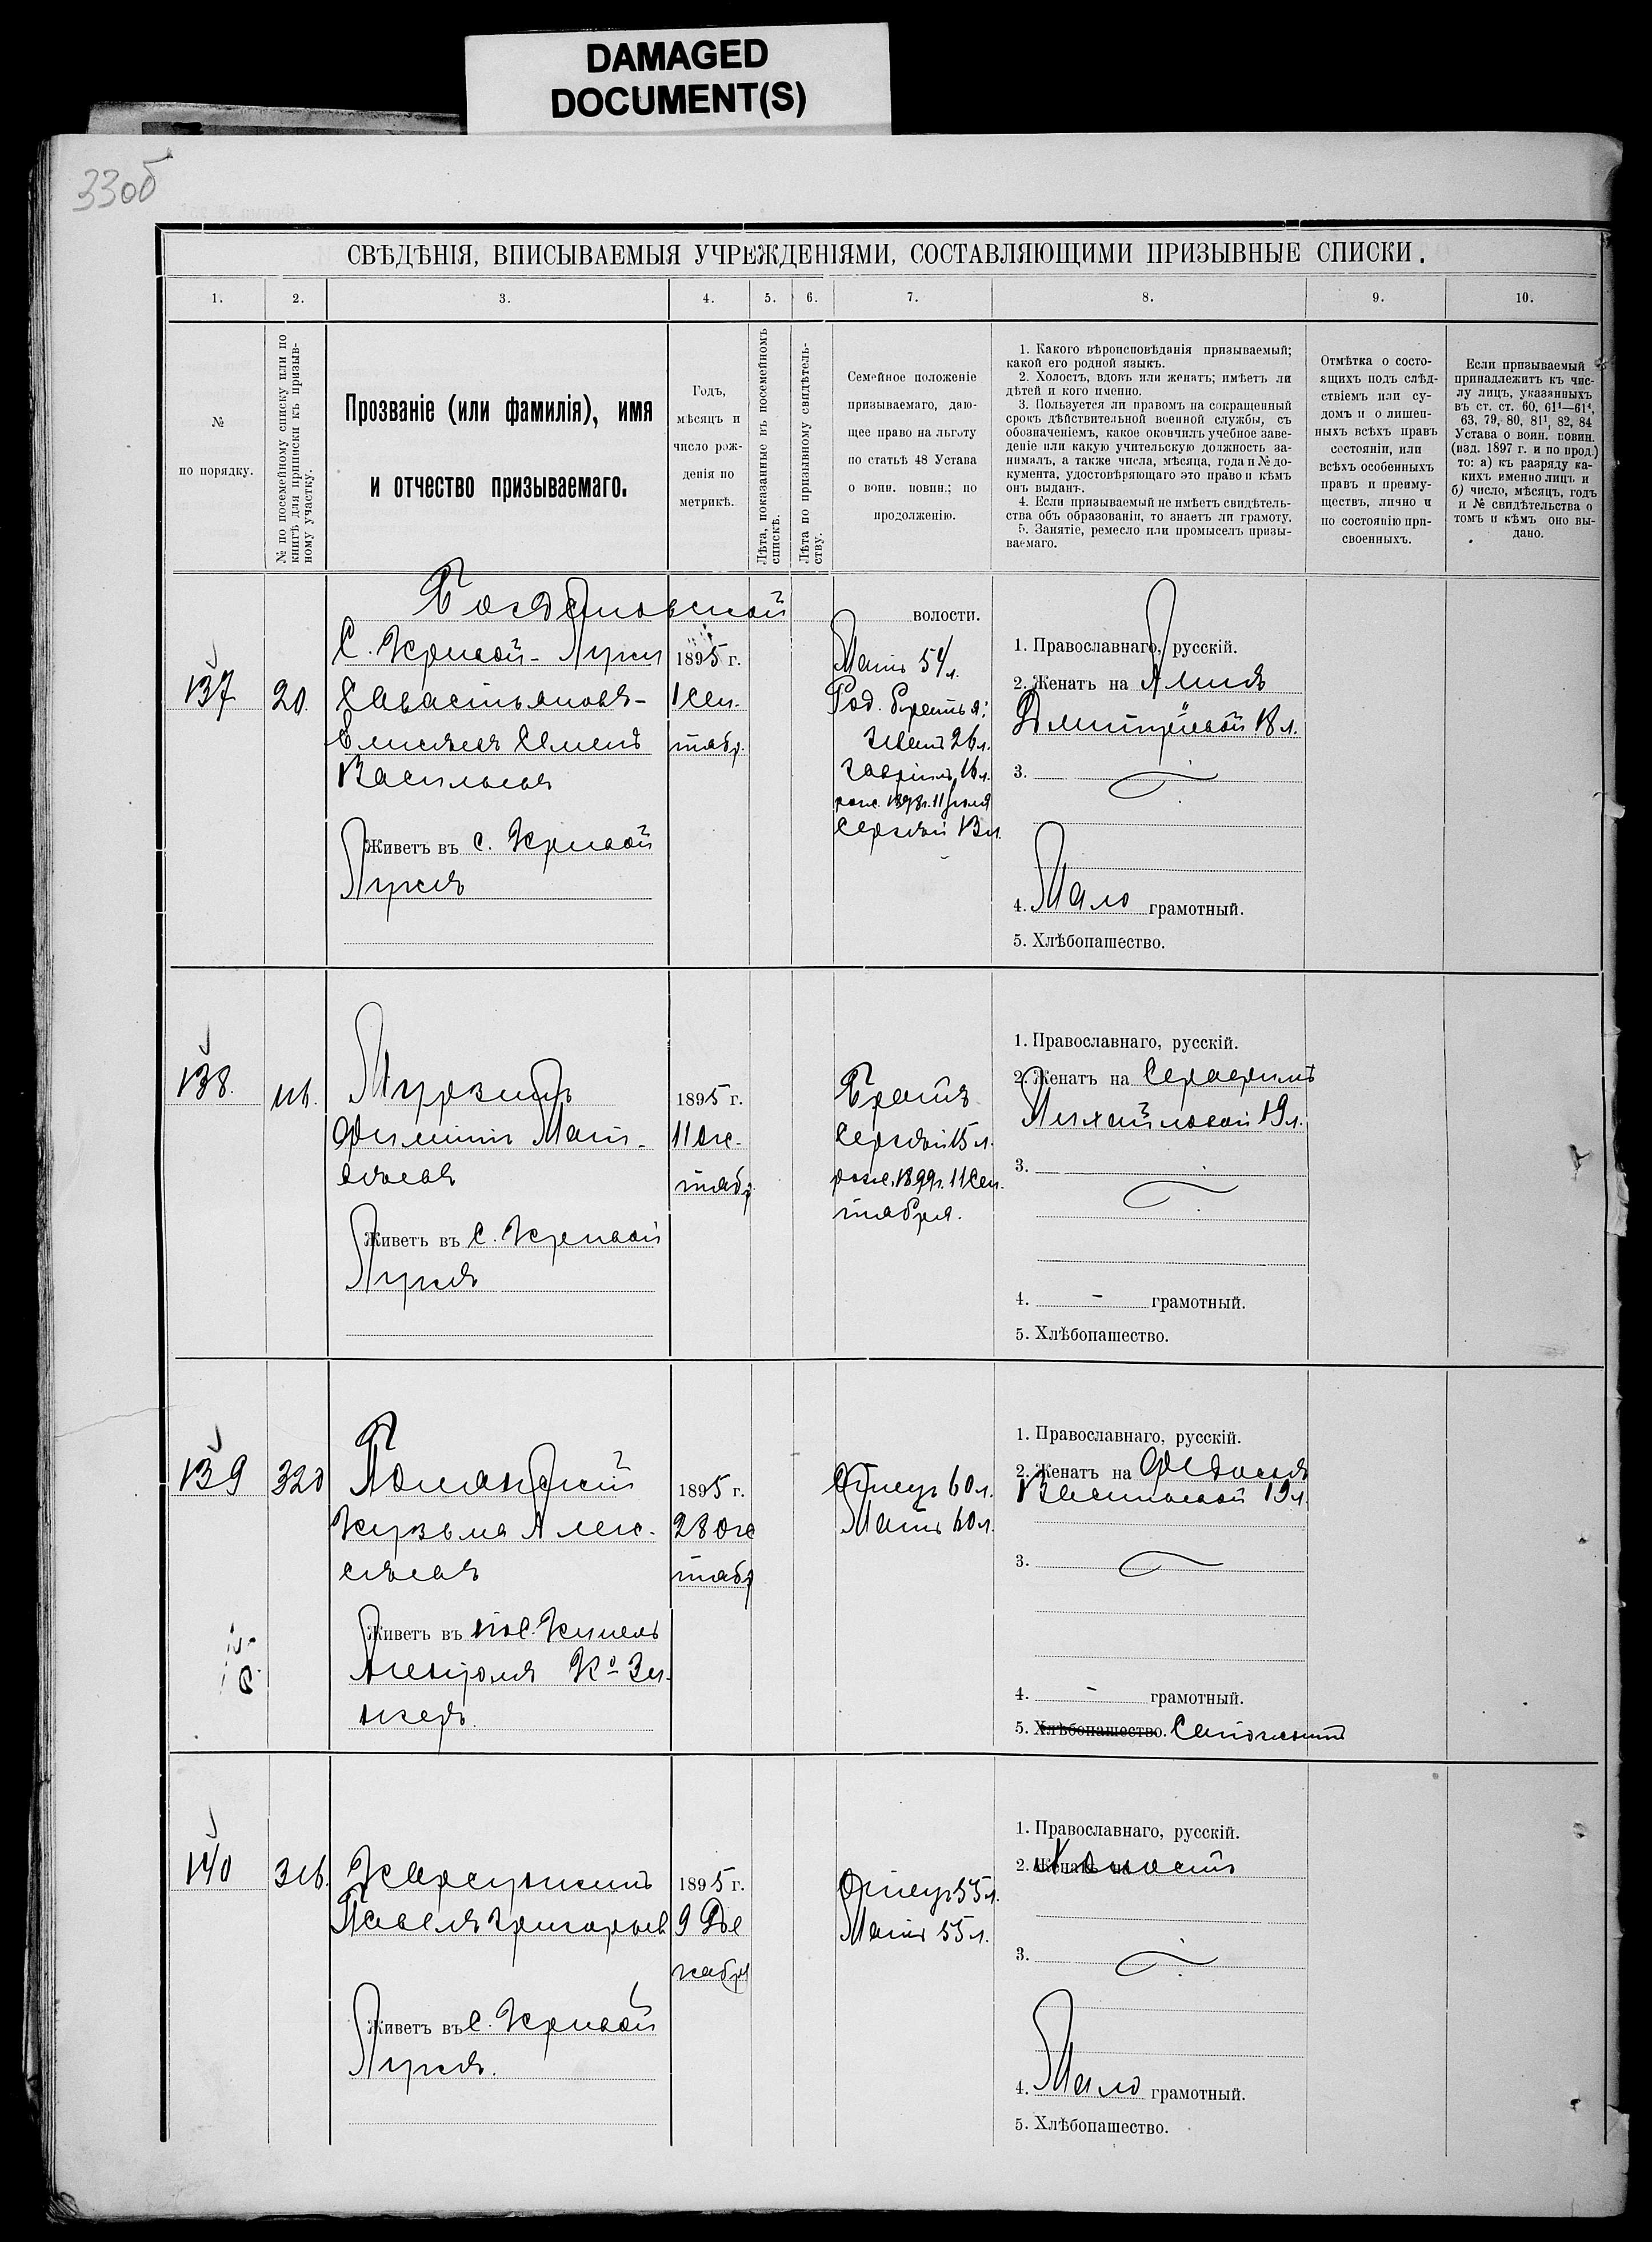 DAMAGED
DOCUMENT(S)
33об
СВѢДѢНІЯ, ВПИСЫВАЕМЫЯ УЧРЕЖДЕНІЯМИ, СОСТАВЛЯЮЩИМИ ПРИЗЫВНЫЕ СПИСКИ.
1. 2. 3. 4. 5. 6. 7. 8. 9. 10.
№
по порядку.
№ по посемейному списку или по
книгѣ для приписки къ призыв-
ному участку.
Прозваніе (или фамилія), имя
и отчество призываемаго.
Годъ,
мѣсяцъ и
число рож-
денія по
метрикѣ.
Лѣта, показанные въ посемейномъ
спискѣ.
Лѣта по призывному свидѣтель-
ству.
Семейное положеніе
призываемаго, даю-
щее право на льготу
по статьѣ 48 Устава
о воин. повин.; по
продолженію.
1. Какого вѣроисповѣданія призываемый;
какой его родной языкъ.
2. Холостъ, вдовъ или женатъ; имѣетъ ли
дѣтей и кого именно.
3. Пользуется ли правомъ на сокращенный
срокъ дѣйствительной военной службы, съ
обозначеніемъ, какое окончилъ учебное заве-
деніе или какую учительскую должность за-
нималъ, а также числа, мѣсяца, года и № до-
кумента, удостовѣряющаго это право и кѣмъ
онъ выданъ.
4. Если призываемый не имѣетъ свидѣтель-
ства объ образованіи, то знаетъ ли грамоту.
5. Занятіе, ремесло или промыселъ призы-
ваемаго.
Отмѣтка о состо-
ящихъ подъ слѣд-
ствіемъ или су-
домъ и о лишен-
ныхъ всѣхъ правъ
состоянія, или
всѣхъ особенныхъ
правъ и преиму-
ществъ, лично и
по состоянію при-
своенныхъ.
Если призываемый
принадлежитъ къ чис-
лу лицъ, указанныхъ
въ ст. ст. 60, 61¹—61⁴,
63, 79, 80, 81¹, 82, 84
Устава о воин. повин.
(изд. 1897 г. и по прод.)
то: а) къ разряду ка-
кихъ именно лицъ и
б) число, мѣсяцъ, годъ
и № свидѣтельства о
томъ и кѣмъ оно вы-
дано.
Богдановской волости.
С. Кривой-Луки
137
20.
Севастьяновъ-
Елисѣевъ Семенъ
Васильевъ
Живетъ въ с. Кривой
Лукѣ
1895 г.
1 Сен-
тябр.
Мать 54 л.
Род. братья:
Иванъ 26 л.
Гавріилъ 16 л.
рож. 1898 г. 11 Іюля
Сергѣй 13 л.
1. Православнаго, русскій.
2. Женатъ на Аннѣ
Дмитріевой 18 л.
3.
4. Мало грамотный.
5. Хлѣбопашество.
138.
Мурзинъ
Филиппъ Мат-
вѣевъ
Живетъ въ с. Кривой
Лукѣ
1895 г.
11 Ок-
тябр
Братъ
Сергѣй 15 л.
рож. 1899 г. 11 Сен-
тября.
1. Православнаго, русскій.
2. Женатъ на Серафимѣ
Михайловой 19 л.
3.
4. - грамотный.
5. Хлѣбопашество.
139
320
Кузьма Алек-
сѣевъ
Живетъ въ пос. Кинель
1895 г.
28 Ок
тябр
Отецъ 60 л.
Мать 60 л.
1. Православнаго, русскій.
2. Женатъ на Федосьѣ
Васильевой 19 л.
3.
4. - грамотный.
5. Хлѣбопашество. Сапожникъ
140
Павелъ Григорьев
Живетъ въ с. Кривой
Лукѣ.
1895 г.
9 Де
кабря
Отецъ 55 л.
Мать 55 л.
1. Православнаго, русскій.
2. Женатъ на Холостъ
3.
4. Мало грамотный.
5. Хлѣбопашество.